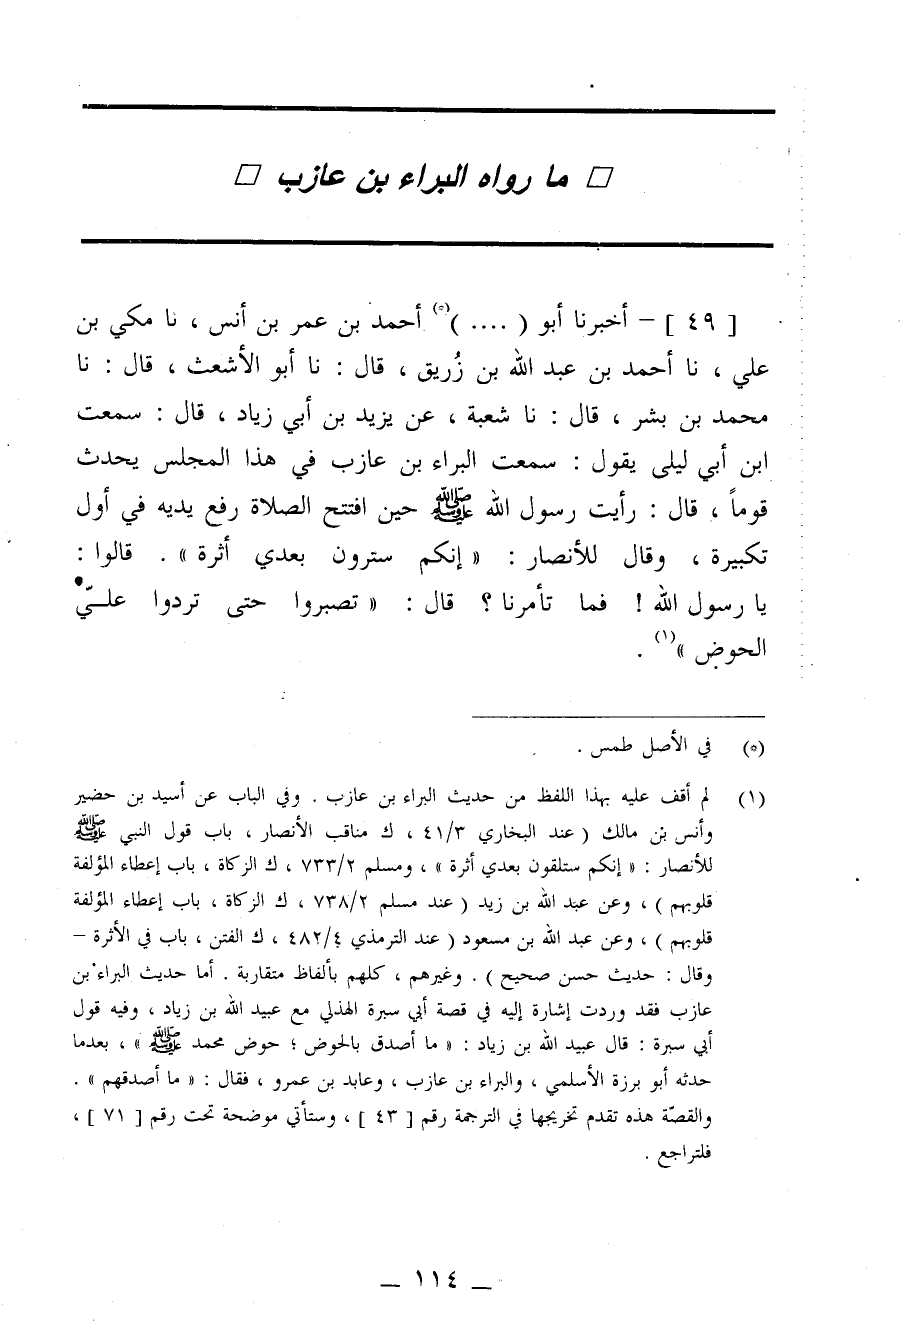 □ ما رواه البراء بن عازب □
[ ٤٩ ] – أخبرنا أبو ( .... )(*) أحمد بن عمر بن أنس ، نا مكي بن
علي ، نا أحمد بن عبد الله بن زُريق ، قال : نا أبو الأشعث ، قال : نا
محمد بن بشر ، قال : نا شعبة ، عن يزيد بن أبي زياد ، قال : سمعت
ابن أبي ليلى يقول : سمعت البراء بن عازب في هذا المجلس يحدث
قوماً ، قال : رأيت رسول الله ﷺ حين افتتح الصلاة رفع يديه في أول
تكبيرة ، وقال للأنصار : « إنكم سترون بعدي أثرة » . قالوا :
يا رسول الله ! فما تأمرنا ؟ قال : « تصبروا حتى تردوا علـيّ
الحوض »(١) .
(*) في الأصل طمس .
(١) لم أقف عليه بهذا اللفظ من حديث البراء بن عازب . وفي الباب عن أسيد بن حضير
وأنس بن مالك ( عند البخاري ٤١/٣ ، ك مناقب الأنصار ، باب قول النبي ﷺ
للأنصار : « إنكم ستلقون بعدي أثرة » ، ومسلم ٧٣٣/٢ ، ك الزكاة ، باب إعطاء المؤلفة
قلوبهم ) ، وعن عبد الله بن زيد ( عند مسلم ٧٣٨/٢ ، ك الزكاة ، باب إعطاء المؤلفة
قلوبهم ) ، وعن عبد الله بن مسعود ( عند الترمذي ٤٨٢/٤ ، ك الفتن ، باب في الأثرة –
وقال : حديث حسن صحيح ) . وغيرهم ، كلهم بألفاظ متقاربة . أما حديث البراء بن
عازب فقد وردت إشارة إليه في قصة أبي سبرة الهذلي مع عبيد الله بن زياد ، وفيه قول
أبي سبرة : قال عبيد الله بن زياد : « ما أصدق بالحوض ؛ حوض محمد ﷺ » ، بعدما
حدثه أبو برزة الأسلمي ، والبراء بن عازب ، وعابد بن عمرو ، فقال : « ما أصدقهم » .
والقصّة هذه تقدم تخريجها في الترجمة رقم [ ٤٣ ] ، وستأتي موضحة تحت رقم [ ٧١ ] ،
فلتراجع .
_ ١١٤ _